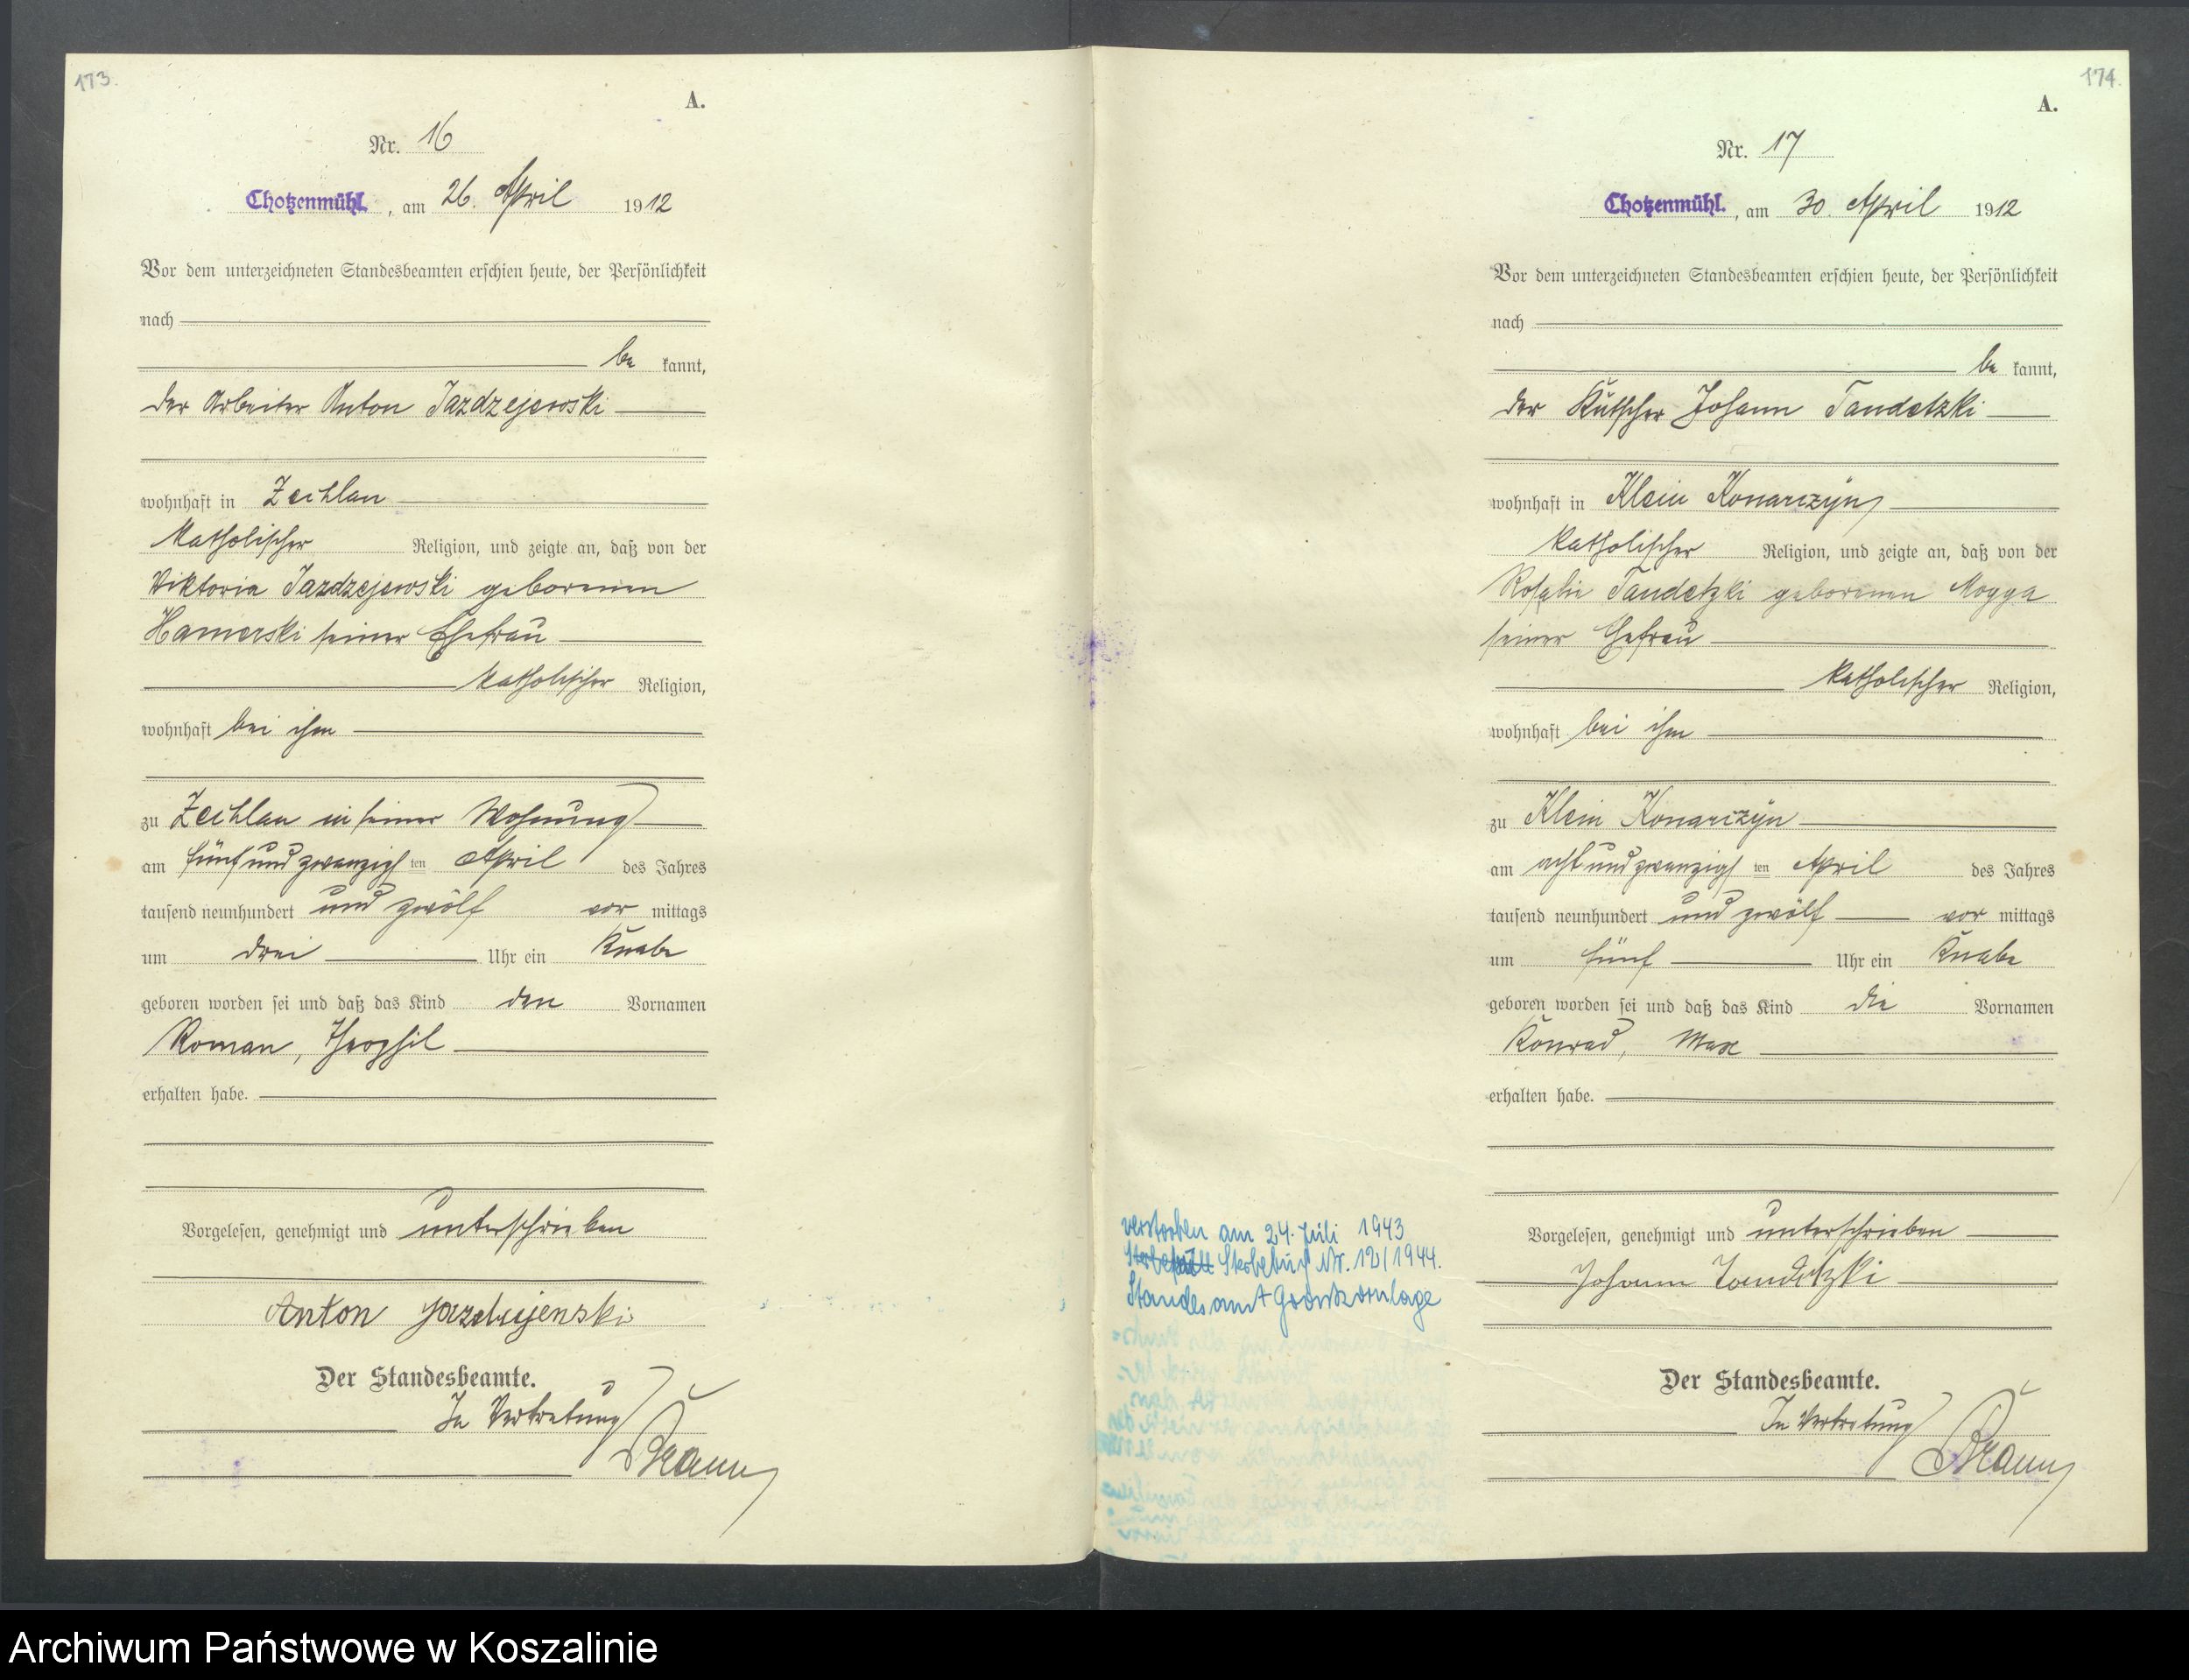 173.
A.
Nr. 16
Chotzenmühl, am 26. April 1912
Vor dem unterzeichneten Standesbeamten erschien heute, der Persönlichkeit
nach
be kannt,
der Arbeiter Anton Jazdzejewski
wohnhaft in Zechlau
katholischer Religion, und zeigte an, daß von der
Viktoria Jazdzejewski geborenen
Hamerski seiner Ehefrau
katholischer Religion,
wohnhaft bei ihm
zu Zechlau in seiner Wohnung
am fünfundzwanzigsten April des Jahres
tausend neunhundert und zwölf vor mittags
um drei Uhr ein Knabe
geboren worden sei und daß das Kind den Vornamen
Roman, Theophil
erhalten habe.
Vorgelesen, genehmigt und unterschrieben
Anton
Der Standesbeamte.
In Vertretung
174.
A.
Nr. 17
Chotzenmühl. am 30. April 1912
Vor dem unterzeichneten Standesbeamten erschien heute, der Persönlichkeit
nach
be kannt,
der Kutscher Johann Tandetzki
wohnhaft in Klein Konarczyn
katholischer Religion, und zeigte an, daß von der
Rosalie Tandetzki geborenen Mogga
seiner Ehefrau
katholischer Religion,
wohnhaft bei ihm
zu Klein Konarczyn
am achtundzwanzigsten April des Jahres
tausend neunhundert und zwölf vor mittags
um fünf Uhr ein Knabe
geboren worden sei und daß das Kind die Vornamen
Konrad, Max
erhalten habe.
Vorgelesen, genehmigt und unterschrieben
Johann Tandetzki
Der Standesbeamte.
In Vertretung
verstorben am 24. Juli 1943
Sterbebuch Nr. 12/1944.
Standesamt
Archiwum Państwowe w Koszalinie